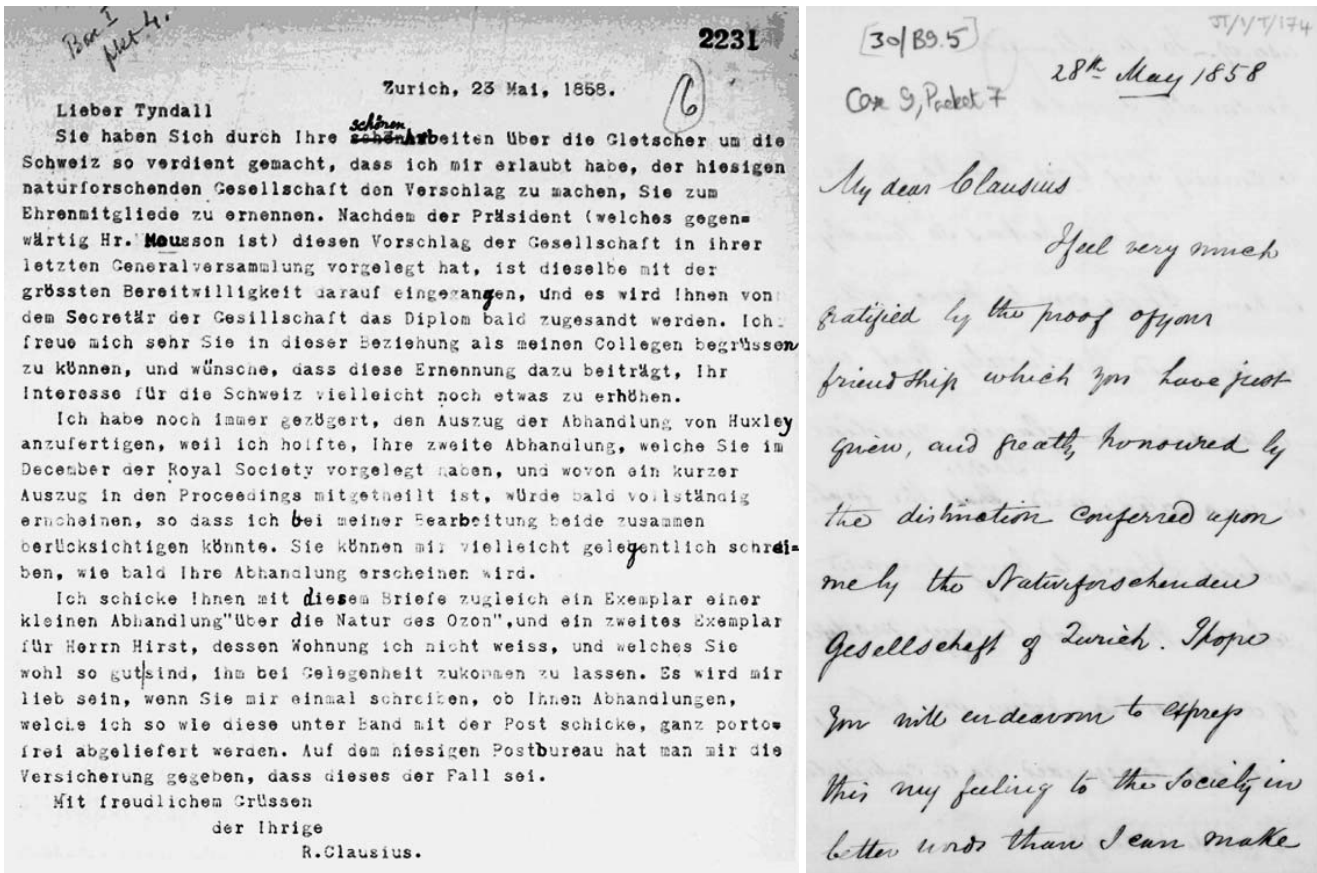 Box I
pkt 4.
2231
6
Zurich, 23 Mai, 1858.
Lieber Tyndall
Sie haben Sich durch Ihre schönen Arbeiten über die Gletscher um die
Schweiz so verdient gemacht, dass ich mir erlaubt habe, der hiesigen
naturforschenden Gesellschaft den Verschlag zu machen, Sie zum
Ehrenmitgliede zu ernennen. Nachdem der Präsident (welches gegen=
wärtig Hr. Mousson ist) diesen Vorschlag der Gesellschaft in ihrer
letzten Generalversammlung vorgelegt hat, ist dieselbe mit der
grössten Bereitwilligkeit darauf eingegangen, und es wird Ihnen von
dem Secretär der Gesillschaft das Diplom bald zugesandt werden. Ich
freue mich sehr Sie in dieser Beziehung als meinen Collegen begrüssen
zu können, und wünsche, dass diese Ernennung dazu beiträgt, Ihr
Interesse für die Schweiz vielleicht noch etwas zu erhöhen.
Ich habe noch immer gezögert, den Auszug der Abhandlung von Huxley
anzufertigen, weil ich hoffte, Ihre zweite Abhandlung, welche Sie im
December der Royal Society vorgelegt haben, und wovon ein kurzer
Auszug in den Proceedings mitgetheilt ist, würde bald vollständig
erscheinen, so dass ich bei meiner Bearbeitung beide zusammen
berücksichtigen könnte. Sie können mir vielleicht gelegentlich schrei=
ben, wie bald Ihre Abhandlung erscheinen wird.
Ich schicke Ihnen mit diesem Briefe zugleich ein Exemplar einer
kleinen Abhandlung"über die Natur des Ozon",und ein zweites Exemplar
für Herrn Hirst, dessen Wohnung ich nicht weiss, und welches Sie
wohl so gut sind, ihm bei Gelegenheit zukommen zu lassen. Es wird mir
lieb sein, wenn Sie mir einmal schreiben, ob Ihnen Abhandlungen,
welche ich so wie diese unter Band mit der Post schicke, ganz porto=
frei abgeliefert werden. Auf dem hiesigen Postbureau hat man mir die
Versicherung gegeben, dass dieses der Fall sei.
Mit freudlichem Grüssen
der Ihrige
R.Clausius.
JT/1/T/174
[30/B9.5]
28th May 1858
Case 9, Packet 7
My dear Clausius
I feel very much
gratified by the proof of your
friendship which you have just
given, and greatly honoured by
the distinction conferred upon
me by the Naturforschenden
Gesellschaft of Zurich. I hope
you will endeavour to express
this my feeling to the Society in
better words than I can make